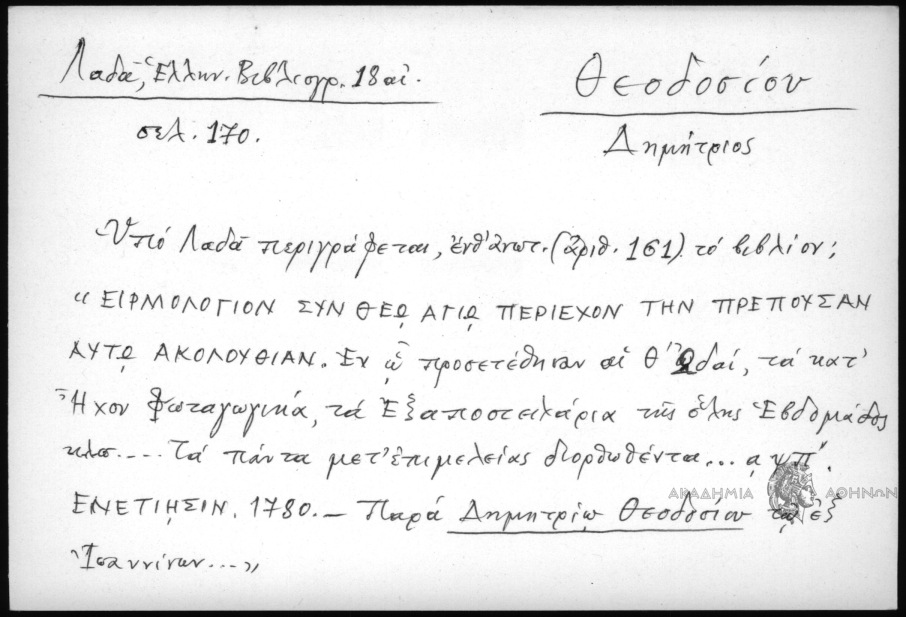 Λαδᾶ, Ἑλλην. Βιβλιογρ. 18 αἰ.
σελ. 170.
Θεοδοσίου
Δημήτριος
Ὑπό Λαδᾶ περιγράφεται, ἐνθ' ἀνωτ. (ἀριθ. 161) τό βιβλίον;
"ΕΙΡΜΟΛΟΓΙΟΝ ΣΥΝ ΘΕῼ ΑΓΙῼ ΠΕΡΙΕΧΟΝ ΤΗΝ ΠΡΕΠΟΥΣΑΝ
ΑΥΤῼ ΑΚΟΛΟΥΘΙΑΝ. Ἐν ᾧ προσετέθησαν αἱ θ' Ὠδαί, τά κατ'
Ἦχον Φωταγωγικά, τά Ἐξαποστειλάρια τῆς ὅλης Ἑβδομάδος
κλπ.... Τά πάντα μετ' ἐπιμελείας διορθωθέντα... αψπ'.
ΕΝΕΤΙῌΣΙΝ. 1780. – Παρά Δημητρίῳ Θεοδοσίου τῷ ἐξ
Ἰωαννίνων...."
ΑΚΑΔΗΜΙΑ ΑΘΗΝΩΝ